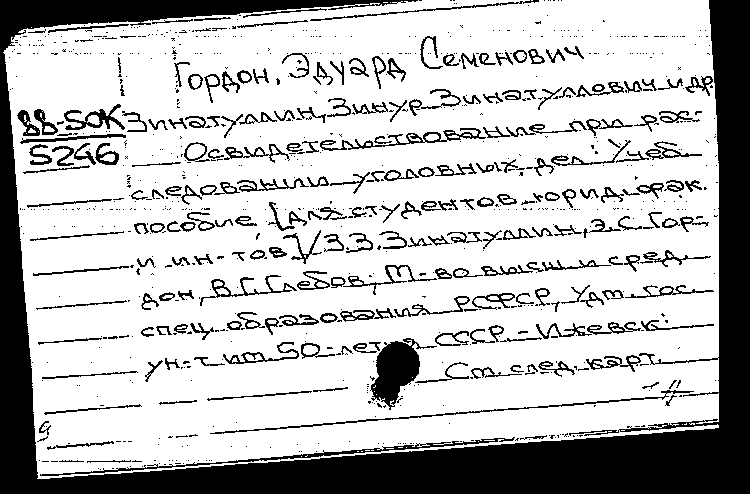 Гордон, Эдуард Семенович
88-50К Зинатуллин, Зинур Зинатуллевич и др.
5246 Освидетельствование при рас-
следовании уголовных дел: Учеб.
пособие [для студентов юрид. фак.
и ин-тов] / З.З. Зинатуллин, Э.С. Гор-
дон, В.Г. Глебов; М-во высш. и сред.
спец. образования РСФСР, Удт. гос.
ун-т им. 50-летия СССР. - Ижевск:
См. след. карт.
9